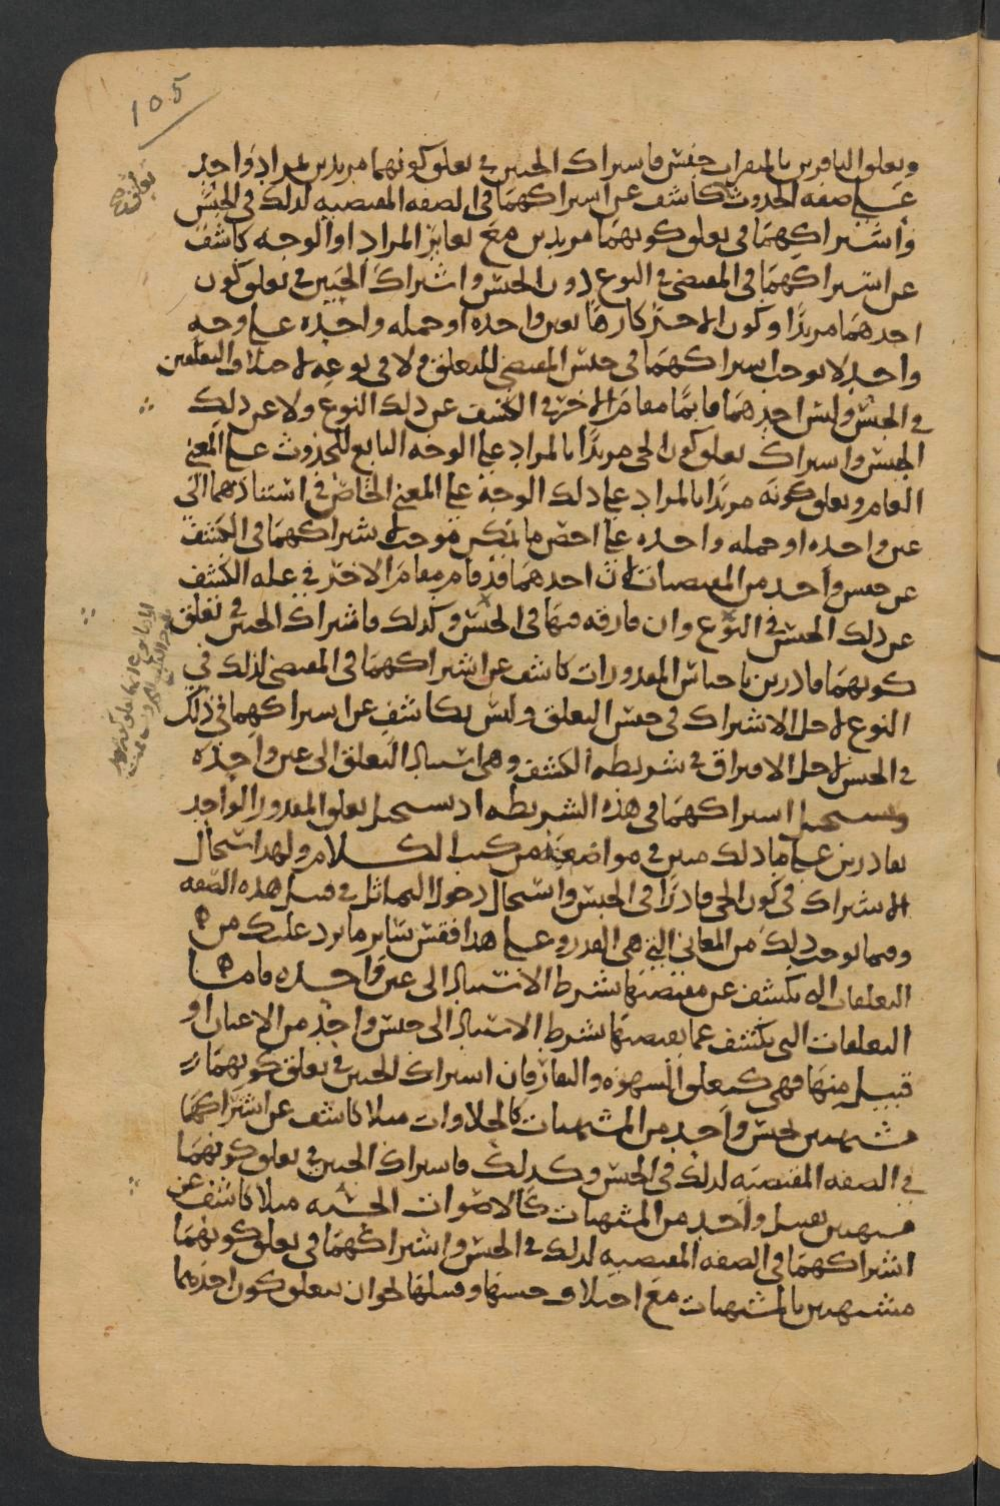 105
وتعلق النافرين بالمنفرات جنس فاشتراك الحيين في تعلق كونهما مريدين لمراد واحد
على صفه الحدوث كاشف عن اشتراكهما في الصفه المقتضيه لذلك في الجنس
واشتراكهما في تعلق كونهما مريدين مع تغاير المراد او الوجه كاشف
عن اشتراكهما في المقتضي في النوع دون الجنس واشتراك الحيين في تعلق كون
احدهما مريدا وكون الاخر كارها بعين واحده او جمله واحده على وجه
واحد لا يوجب اشتراكهما في جنس المقتضي للتعلق ولا في نوعه لاختلاف التعلقين
في الجنس وليس احدهما قايما مقام الاخر في الكشف عن ذلك النوع ولا عن ذلك
الجنس واشتراك تعلق كون الحي مريدا بالمراد على الوجه التابع للحدوث على المعنى
العام وتعلق كونه مريدا بالمراد على ذلك الوجه على المعنى الخاص في استنادهما الى
عين واحده او جمله واحده على اخص ما يمكن موجب لاشتراكهما في الكشف
عن جنس واحد من المقتضيات لان احدهما قد قام مقام الاخر في عله الكشف
عن ذلك الجنس في النوع وان فارقه فيها في الجنس وكذلك فاشتراك الحيين في تعلق
كونهما قادرين باجناس المقدورات كاشف عن اشتراكهما في المقتضي لذلك في
النوع لاجل الاشتراك في جنس التعلق وليس بكاشف عن اشتراكهما في ذلك
في الجنس لاجل الافتراق في شريطه الكشف وهي استناد التعلق الى عين واحده
ويستحيل اشتراكهما في هذه الشريطه اذ يستحيل تعلق المقدور الواحد
بقادرين على ما ذلك مبين في مواضعه من كتب الكلام ولهذا استحال
الاشتراك في كون الحي قادرا في الجنس واستحال دخول التماثل في قبيل هذه الصفه
وفيما يوجب ذلك من المعاني التي هي القدر وعلى هذا فقس ساير ما يرد عليك من
التعلقات التي يكشف عن مقتضيها بشرط الاستناد الى عين واحده فاما
التعلقات التي يكشف عما يقتضيها بشرط الاستناد الى جنس واحد من الاعيان او
قبيل منها فهي كتعلق الشهوه والنفار فان اشتراك الحيين في تعلق كونهما
مشتهيين لجنس واحد من المشتهيات كالحلاوات مثلا كاشف عن اشتراكهما
في الصفه المقتضيه لذلك في الجنس وكذلك فاشتراك الحيين في تعلق كونهما
مشتهيين بقبيل واحد من المشتهيات كالاصوات الحسنه مثلا كاشف عن
اشتراكهما في الصفه المقتضيه لذلك في الجنس واشتراكهما في تعلق كونهما
مشتهيين بالمشتهيات مع اختلاف جنسها وقبيلها لجواز تعلق كون احدهما